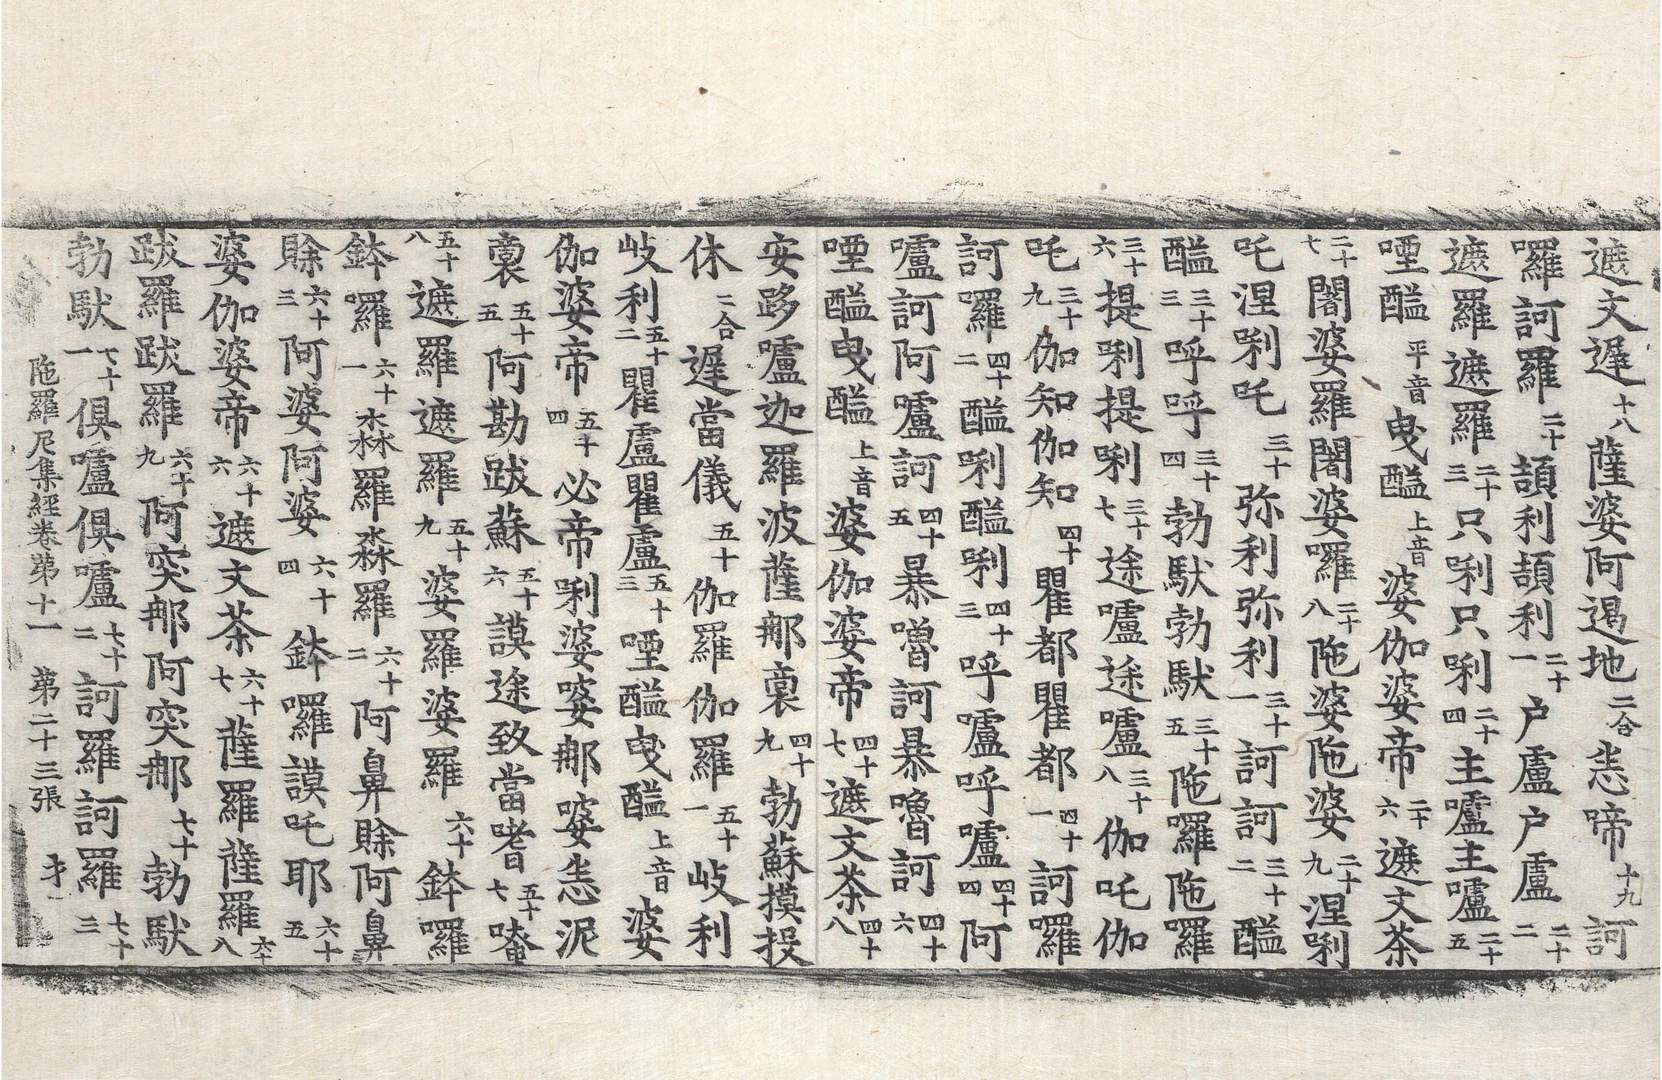 遮文遲十八薩婆阿遏地二合恙啼十九訶
囉訶羅二十頡利頡利二十一户盧户盧二十二
遮羅遮羅二十三只唎只唎二十四主嚧主嚧二十五
堙醯平音曳醯上音婆伽婆帝二十六遮文茶
二十七闍婆羅闍婆囉二十八陁婆陁婆二十九涅唎
吒涅唎吒三十弥利弥利三十一訶訶三十二醯
醯三十三呼呼三十四勃馱勃馱三十五陁囉陁囉
三十六提唎提唎三十七途嚧途嚧三十八伽吒伽
吒三十九伽知伽知四十瞿都瞿都四十一訶囉
訶囉四十二醯唎醯唎四十三呼嚧呼嚧四十四阿
嚧訶阿嚧訶四十五暴嚕訶暴嚕訶四十六
堙醯曳醯上音婆伽婆帝四十七遮文茶四十八
安跢嚧迦羅波薩那裏四十九勃蘇摸投
休二合遲當儀五十伽羅伽羅五十一岐利
岐利五十二瞿盧瞿盧五十三堙醯曳醯上音婆
伽婆帝五十四必帝唎婆婆那婆恙泥
裏五十五阿勘跋蘇五十六謨途致當嗜五十七唵
五十八遮羅遮羅五十九婆羅婆羅六十鉢囉
鉢囉六十一淼羅淼羅六十二阿鼻賖阿鼻
賖六十三阿婆阿婆六十四鉢囉謨吒耶六十五
婆伽婆帝六十六遮文茶六十七薩羅薩羅六十八
跋羅跋羅六十九阿突那阿突那七十勃馱
勃馱七十一俱嚧俱嚧七十二訶羅訶羅七十三
陁羅尼集經卷第十一 第二十三張 才